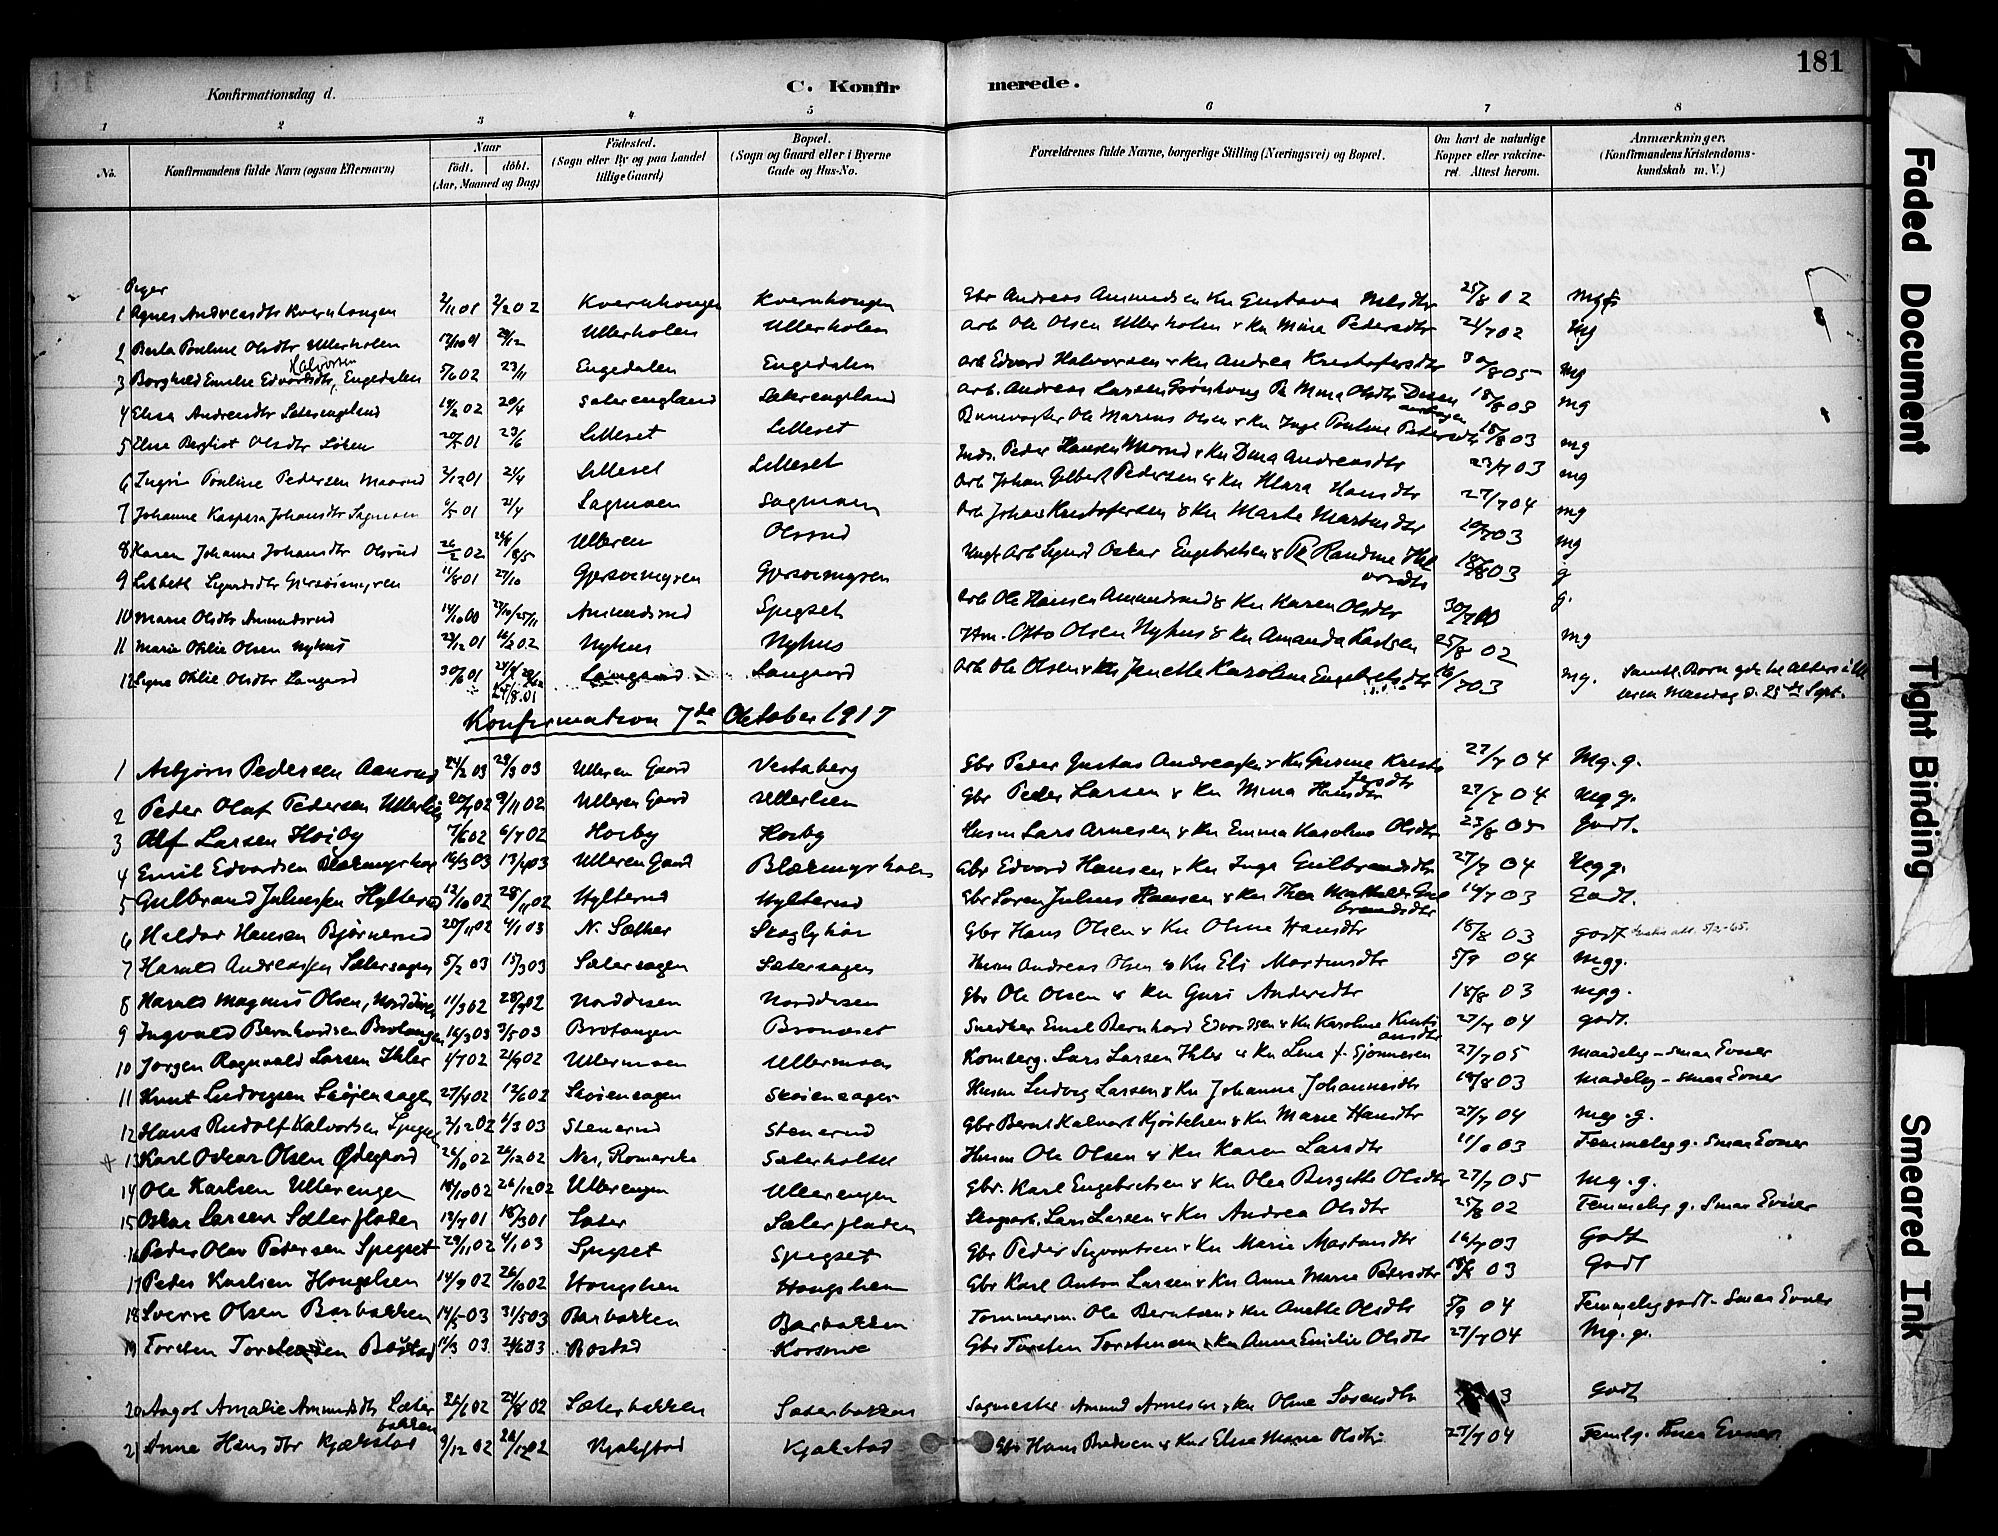 181
Konfirmationsdag d.
C. Konfirmerede.
1 2 3 4 5 6 7 8
No. Konfirmandens fulde Navn (ogsaa Efternavn) Naar födt. döbt. (Aar, Maaned og Dag) Födested. (Sogn eller By og paa Landet tillige Gaard) Bopæl. (Sogn og Gaard eller i Byerne Gade og Hus-No. Forældrenes fulde Navne, borgerlige Stilling (Næringsvei) og Bopæl. Om havt de naturlige Kopper eller vakcineret. Attest herom. Anmærkninger. (Konfirmandens Kristendomskundskab m. V.)
Piger
1 Agnes Andreasdtr Kvernhougen 2/11 01 2/2 02 Kvernhougen Kvernhougen Gbr Andreas Amundsen Kn Gustava Nilsdtr 25/8 02
2 Berta Pouline Olsdtr Ullerholen Ullerholen Ullerholen Arb Ole Olsen Ullerholen & Kn Mina Pedersdtr 21/7 02 Mg
3 Borghild Emilie Edvardsdtr, Halvorsen Engedalen 5/6 02 23/11 Engedalen Engedalen Arb Edvard Halvorsen & Kn Andrea Kristofersdtr 30/8 05 mg
4 Elisa Andreasdtr Sæterengland 14/2 02 20/4 Sæterengland Sæterengland Arb. Andreas Larsen Grønhoug Pk Mina Olsdtr 18/8 03 mg
5 Else Bergliot Olsdtr Löken 23/6 Lilleset Lilleset Banevogter Ole Marius Olsen & Kn Inga Pouline Petersdtr 18/8 03 mg
6 Pouline Pedersen Maarud 3/12 01 21/4 Lilleset Lilleset Inds. Peder Hansen Maarud & Kn Dina Andreasdtr 23/7 03 mg
7 Johanne Kaspara Johansdtr Sagmoen 6/5 01 21/4 Sagmoen Sagmoen Arb Johan Gilbert Pedersen & Kn Klara Hansdtr 27/7 04 mg
8 Karen Johanne Johansdtr Olsrud 26/2 02 Ulleren Olsrud Arb Johan Kristofersen & Kn Marte Martinsdtr 10/7 03 mg
9 Lisbeth Sigurdsdtr Gjersöimyren 11/8 01 27/10 Gjersoimyren Gjersoimyren Ungk Arb Sigurd Oskar Engebretsen & Pk Randine Halvorsdtr 18/8 03 g
10 Marie Olsdtr Amundsrud 14/10 00 Amundsrud Spigset Arb Ole Hansen Amundsrud & Kn Karen Olsdtr 30/7 00 g.
11 Marie Otilie Olsen Nyhus 23/12 01 16/2 02 Nyhus Nyhus Hm. Otto Olsen Nyhus & Kn Amanda Karlsen 25/8 02 mg
12 Signe Otilie Olsdtr Langrød 30/6 01 Langrød Langrød Arb Ole Olsen & Kn Jenette Karoline Engebretsdtr 16/7 03 mg. Mandag d. 25de Sept.
Konfirmation 7de Oktober 1917
1 Asbjörn Pedersen Aanrud 24/2 03 23/3 03 Ulleren Gaard Vestaberg Gbr Peder Gustav Andreassen & Kn Gunine Kristofersdtr 27/7 04 Mg. g.
2 Peder Olaf Pedersen Ullerlien 20/9 02 9/11 02 Ulleren Gaard Ullerlien Gbr Peder Larsen & Kn Mina Hansdtr 27/7 04 Mg g.
3 Alf Larsen Höiby 7/6 02 6/7 02 Hoiby Hoiby Husm Lars Arnesen & Kn Emma Karoline Olsdtr 23/8 05 Godt.
4 Emil Edvardsen Blækmyrhol 16/3 03 13/4 03 Ulleren Gaard Blækmyrholen Gbr Edvard Hansen & Kn Inga Gulbrandsdtr 27/7 04 Mg g.
5 Gulbrand Juliussen Hylterud 12/10 02 28/11 02 Hylterud Hylterud Gbr Soren Julius Hansen & Kn Thea Mathilde Gulbrandsdtr 14/7 03 Godt.
6 Haldor Hansen Bjørnerud 20/11 02 4/1 03 N. Sæther Skoglyhöi Gbr Hans Olsen & Kn Oline Hansdtr 18/8 03 godt
7 Harald Andreassen Sætersagen 5/2 03 15/3 03 Sætersagen Sætersagen Husm Andreas Olsen & Kn Eli Martinsdtr 5/9 04 Mgg.
8 Harald Magnus Olsen, Norddisen 11/3 02 28/9 02 Norddisen Norddisen Gbr Ole Olsen & Kn Guri Andersdtr 18/8 03 mgg.
9 Ingvald Bernhardsen Brotangen 16/3 03 3/5 03 Brotangen Bronæset Snedker Emil Bernhard Edvardsen & Kn Karoline Kristiansdtr 27/7 04 godt.
10 Jørgen Ragnvald Larsen Ihler 4/7 02 21/9 02 Ullermoen Ullermoen Romberg. Lars Larsen Ihler & Kn Lena f. Gjønnesen 27/7 05 Maadelig - smaa Evner
11 Knut Ludvigsen Skøiensagen 27/4 02 12/6 02 Skøiensagen Skøiensagen Husm Ludvig Larsen & Kn Johanne Johannesdtr 18/8 03 Madelig - smaa Evner
12 Hans Rudolf Kalvartsen Spigset 2/12 02 1/3 03 Stenerud Stenerud Gbr Bernt Kalvart Kjøstelsen & Kn Marie Hansdtr 27/7 04 Mg. g.
13 Karl Oskar Olsen Ødegaard 26/10 02 26/12 02 Nes, Romerike Sæterholtet Husm Ole Olsen & Kn Karen Larsdtr Temmelig g. Smaa Evner
14 Ole Karlsen Ullerengen 18/10 02 26/12 02 Ullerengen Ullerengen Gbr. Karl Engebretsen & Kn Olea Bergette Olsdtr 27/7 05 Mg. g.
15 Oskar Larsen Sæterfloden 12/7 01 18/3 01 Sæter Sæterfloden Skogarb. Lars Larsen & Kn Andrea Olsdtr 25/8 02 Temmelig g. Smaa Evner
16 Peder Olav Pedersen Spigset 29/11 02 4/1 03 Spigset Spigset Gbr Peder Sigvartsen & Kn Marie Martinsdtr 16/7 03 Godt
17 Peder Karlsen Hongslien 14/9 02 26/10 02 Hongslien Hongslien Gbr Karl Anton Larsen & Kn Anne Marie Petersdtr 18/8 03 Godt
18 Sverre Olsen Barbakken 14/5 03 31/5 03 Barbakken Barbakken Tømmerm. Ole Berntsen & Kn Anette Olsdtr 5/9 04 Temmelig godt - Smaa Evner
19 Torsten Torstensen Bøstad 11/3 03 24/6 03 Bostad Korsmoe Gbr Torsten Torstensen & Kn Anna Emilie Olsdtr 27/7 04 Mg. g.
20 Aagot Amalie Amundsdtr Sæterbakken 26/6 02 24/8 02 Sæterbakken Sæterbakken Sagmester Amund Arnesen & Kn Oline Sørensdtr Godt
21 Anna Hansdtr Kjækstad 9/12 02 26/12 02 Kjækstad Kjækstad Gbr Hans Bredesen & Kn Elise Marie Olsdtr 27/7 04 Temlg. Smaa Evner
Faded Document
Tight Binding
Smeared Ink